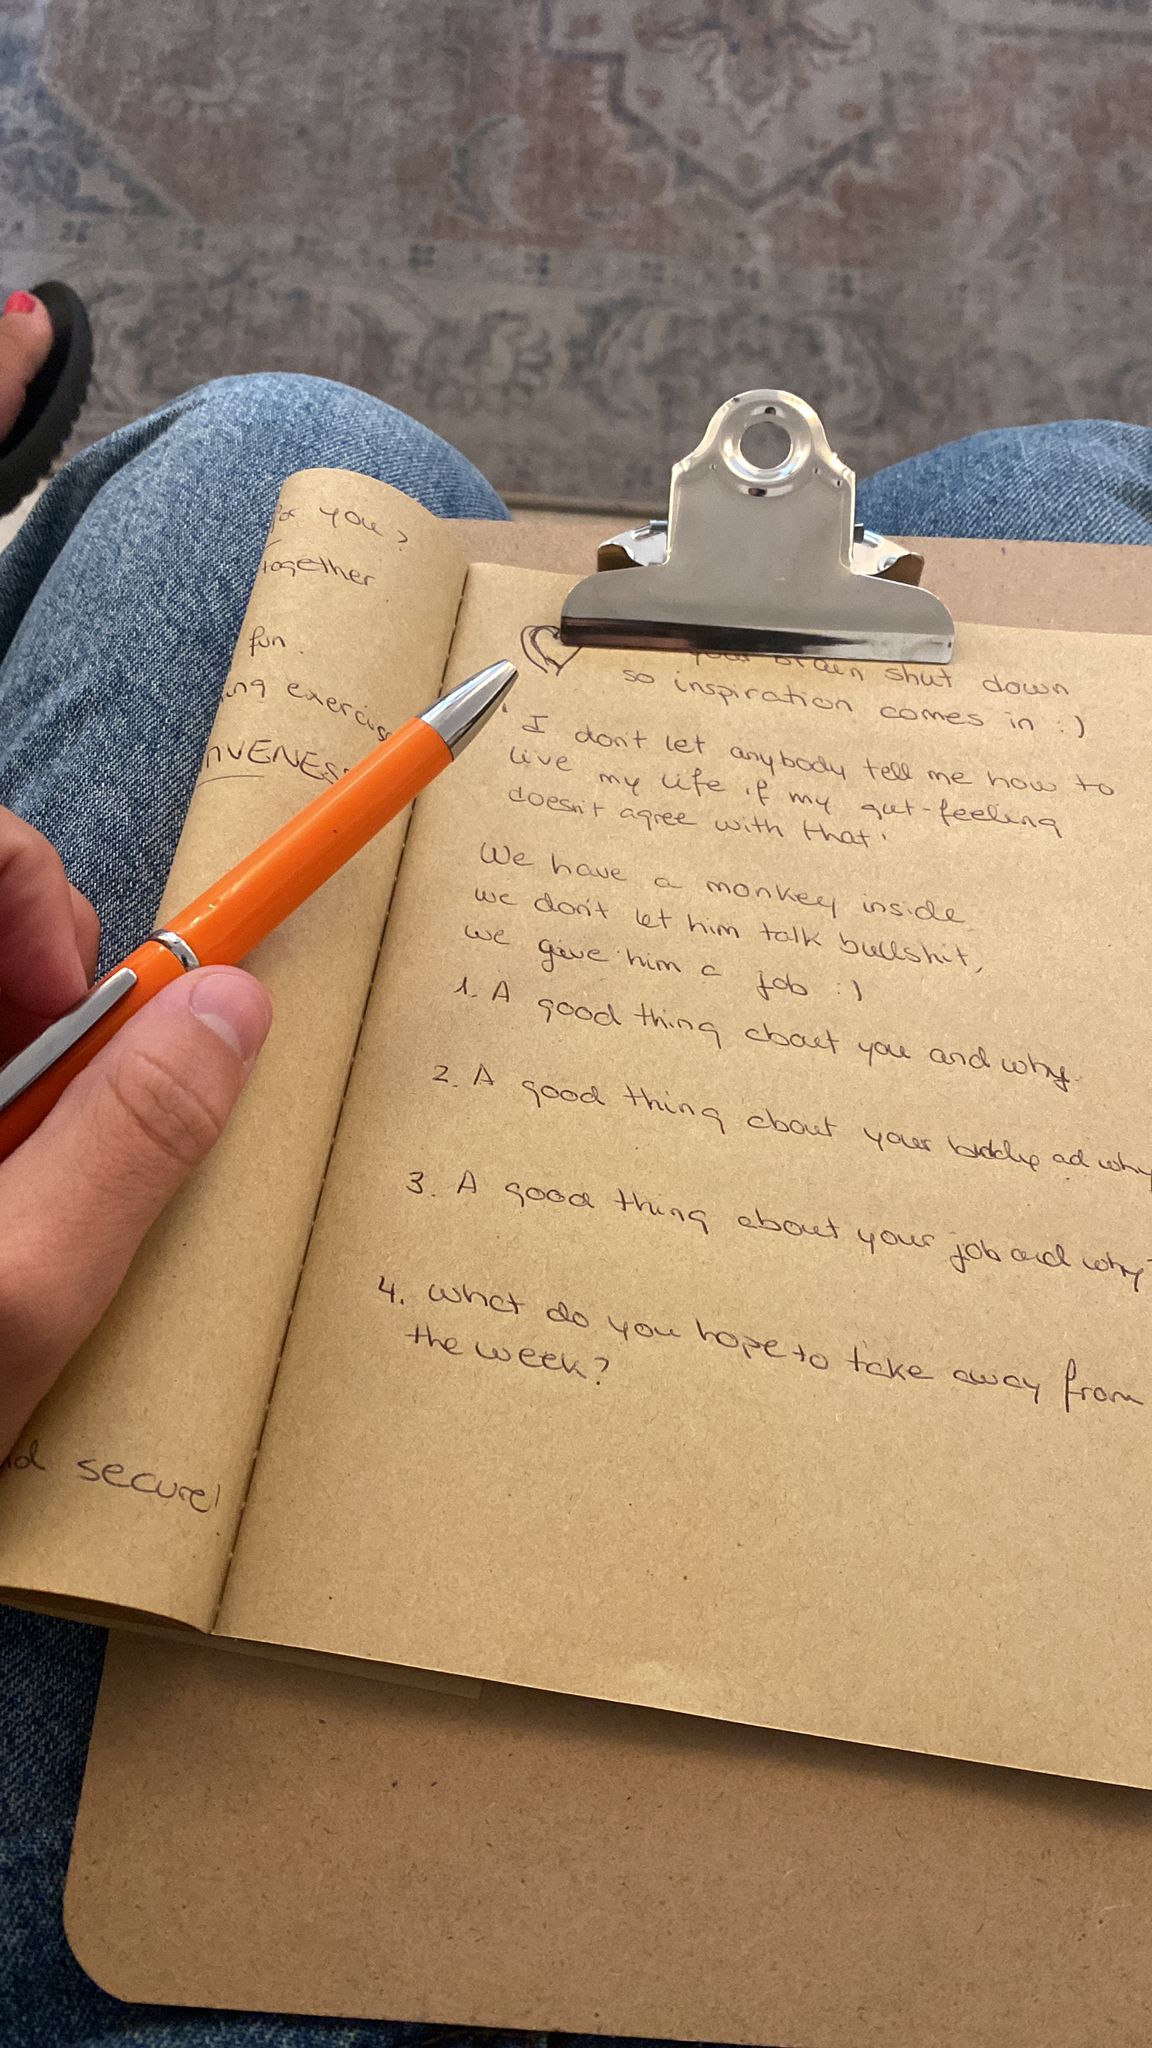 you?
together
fun.
ing exercise
secure!
your brain shut down
so inspiration comes in :)
'I don't let anybody tell me how to
live my life if my gut-feeling
doesn't agree with that'
We have a monkey inside
we don't let him talk bullshit,
we give him a job :)
1. A good thing about you and why.
2. A good thing about your buddy ad why
3. A good thing about your job and why?
4. What do you hope to take away from
the week?